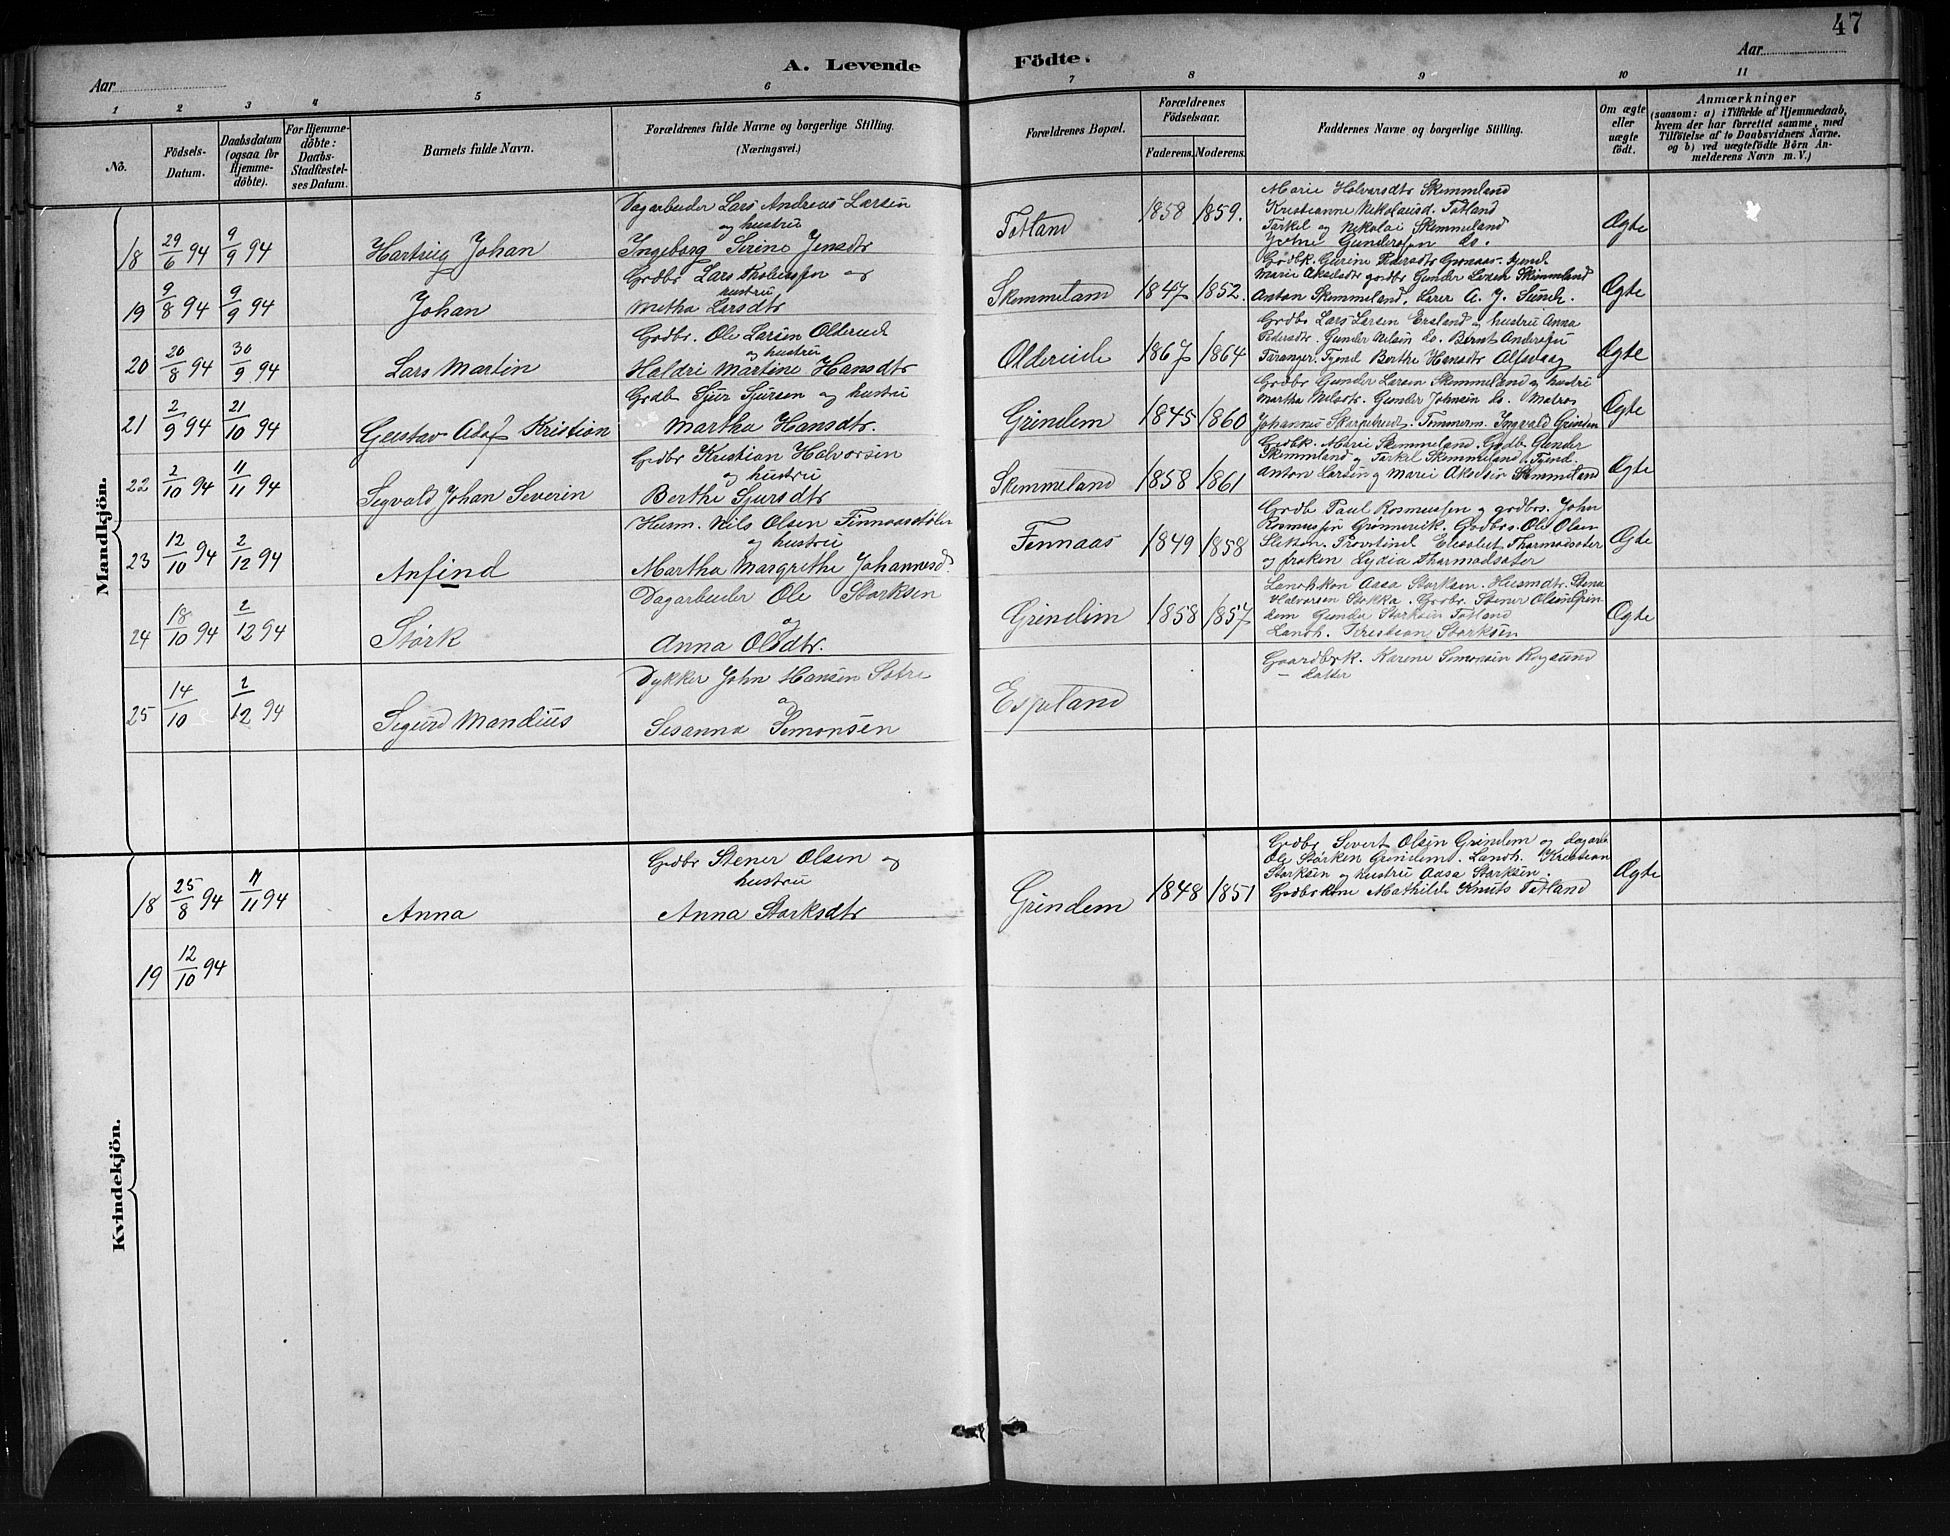 47
A. Levende Födte.
Aar
Aar
1 2 3 4 5 6 7 8 9 10 11
No.
Födsels-Datum.
Daabsdatum (ogsaa for Hjemme-döbte).
For Hjemme-döbte: Daabs-Stadfæstel-ses Datum.
Barnets fulde Navn.
Forældrenes fulde Navne og borgerlige Stilling. (Næringsvei.)
Forældrenes Bopæl.
Forældrenes Födselsaar.
Faderens. Moderens.
Faddernes Navne og borgerlige Stilling.
Om ægte eller uægte födt.
Anmærkninger
(saasom: a) i Tilfælde af Hjemmedaab, hvem der har forrettet samme, med Tilföielse af to Daabsvidners Navne. og b) ved uægtefödte Börn An-melderens Navn m. V.)
Mandkjön.
18 29/6 94 9/9 94 Hartvig Johan
Dagarbeider Lars Andreas Larsen
og hustru
Ingeborg Serine Jensdtr
Totland 1858 1859.
Marie Halvarsdtr Skemmland
Kristianne Nikolaisd. Totland
Torkil og Nikolai Skemmeland
Gundersen do.
Ægte
19 9/8 94 9/9 94 Johan
Grdbr. Lars og
hustru
Metha Larsdtr
Skemmelam 1847 1852.
Gardbk. Gurine
Marie Akseldtr gardbr Gunder Skimmland
Anton Skemmeland. Lærer A. J. Sunde.
Ægte
20 20/8 94 30/9 94 Lars Martin
Grdbr. Ole Larsen Oldereide
og hustru
Haldri Martine Hansdtr
Oldereide 1867 1864
Grdbr Lars Larsen Ersland og hustru Anna
Petersdtr. Gunder Nilsen do. Bernt Andersen
Tyend Berthe Hansdtr
Ægte
21 2/9 94 21/10 94 Gustav Adof Kristian
Grdb Sjur Sjursen og hustru
Martha Hansdtr.
Grindem 1845 1860
Grdbr Gunder Larsen Skemmeland og hustru
Martha Nilsdtr. Gunder Johnsen do. Matros
Johannes Timmerm. Ingvald Grindem
Ægte
22 2/10 94 11/11 94 Segvald Johan Severin
Grdbr Kristian Halvorsen
og hustru
Berthe Sjursdtr
Skemmeland 1858 1861
Grdbk. Marie Skemmeland. Grdb Gunder
Skemmland og Torkil Skemmeland. Tyend.
Anton Larsen og Marie Skemmeland
Ægte
23 12/10 94 2/12 94 Anfind
Husm. Nils Olsen Finnaasstølen
og hustru
Martha Margrethe Johannesd.
Finnaas 1849 1858
Grdb Paul Rasmussen og grdbrs. John
Rasmussen Grønnevik. Grdbrs. Ole Olsen
Elesabet Thormodsæter
og frøken Lydia Thormodsæter
Ægte
24 18/10 94 2/12 94 Størk
Dagarbeider Ole Størksen
og
Anna Olsdtr.
Grindem 1858 1857
Landh.kon Aasa Størksen. Husmdtr. Stena
Halvorsen Stokka. Grdbr. Stener Olsen Grin
dem Gunder Størksen Totland
Landh. Kristian Størksen
Ægte
25 14/10 2/12 94 Segurd Mandius
Dykker John Hansen Sotre
og
Susanna Simonsen
Espeland
Gaardbrk. Karene Simonsen Røysund
— datter
Kvindekjön.
18 25/8 94 11/11 94 Anna
Grdbr Stener Olsen og
hustru
Anna Størksdtr
Grindem 1848 1851
Grdbr Sivert Olsen Grindem og dagarb
Ole Størksen Grindem. Landh. Kristian
Størksen og hustru Aasa Størksen.
Grdbrkone Mathilde Knuts Totland
Ægte
19 12/10 94